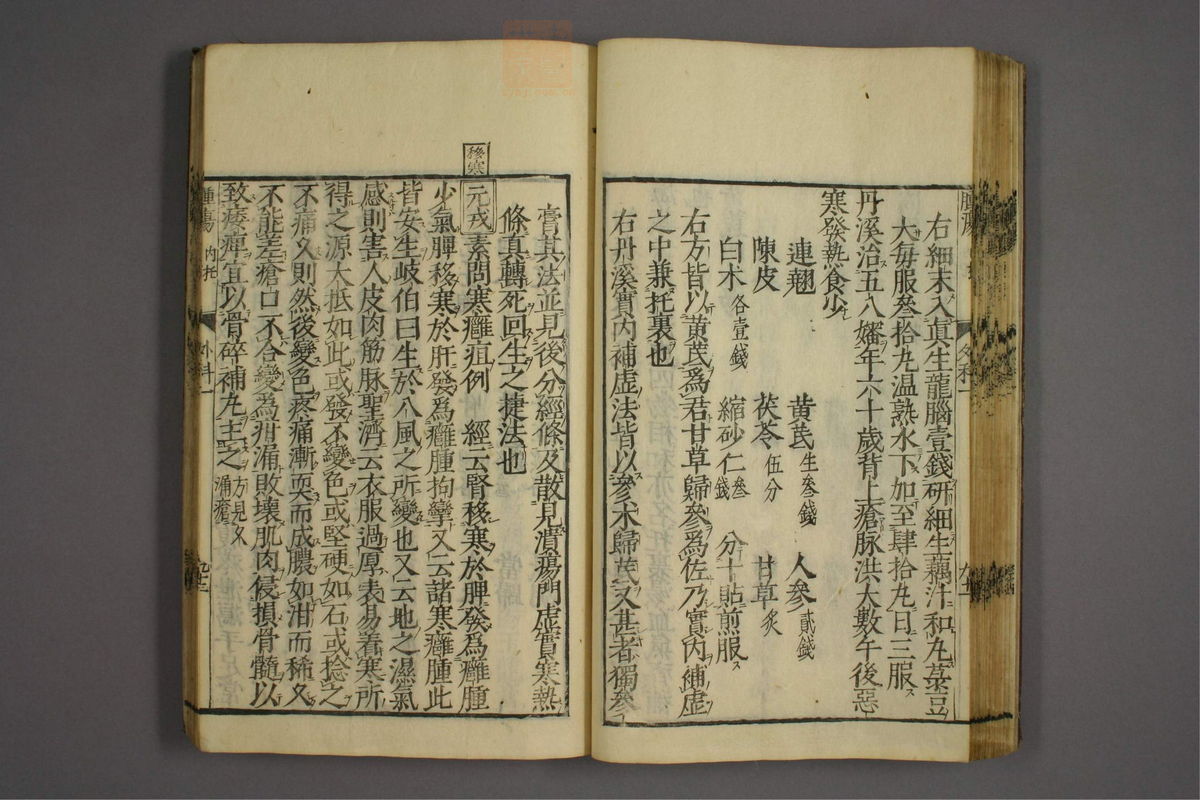 右細末入真生龍腦壹錢研細生藕汁和丸菉豆
大每服參拾丸温熟水下加至肆拾丸日三服
丹溪治五八嬸年六十歲背上瘡脉洪大數午後惡
寒發熱食少
連翹 黃芪生參錢 人參貳錢
陳皮 茯苓伍分 甘草炙
白术各壹錢 縮砂仁參錢 分十貼煎服
右方皆以黃芪爲君甘草歸參爲佐乃實內補虛
之中兼托裏也
右丹溪實內補虛法皆以參术歸芪又甚者獨參
膏其法並見後分經條及散見潰瘍門虛實寒熱
條真轉死回生之捷法也
移寒
元戎素問寒癰疽例 經云腎移寒於脾發爲癰腫
少氣脾移寒於肝發爲癰腫拘攣又云諸寒癰腫此
皆安生岐伯曰生於八風之所變也又云地之濕氣
感則害人皮肉筋脉聖濟云衣服過厚表易着寒所
得之源大抵如此或發不變色或堅硬如石或捻之
不痛久則然後變色疼痛漸耎而成膿如泔而稀久
不能差瘡口不合變爲疳漏敗壞肌肉侵損骨髓以
致痿痺宜以骨碎補丸主之方見久漏瘡
腫瘍 內托 外科一